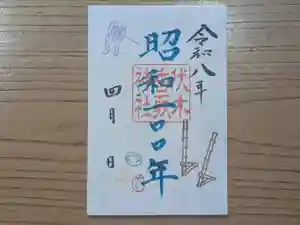 令和八年
昭和一〇〇年
四月 日